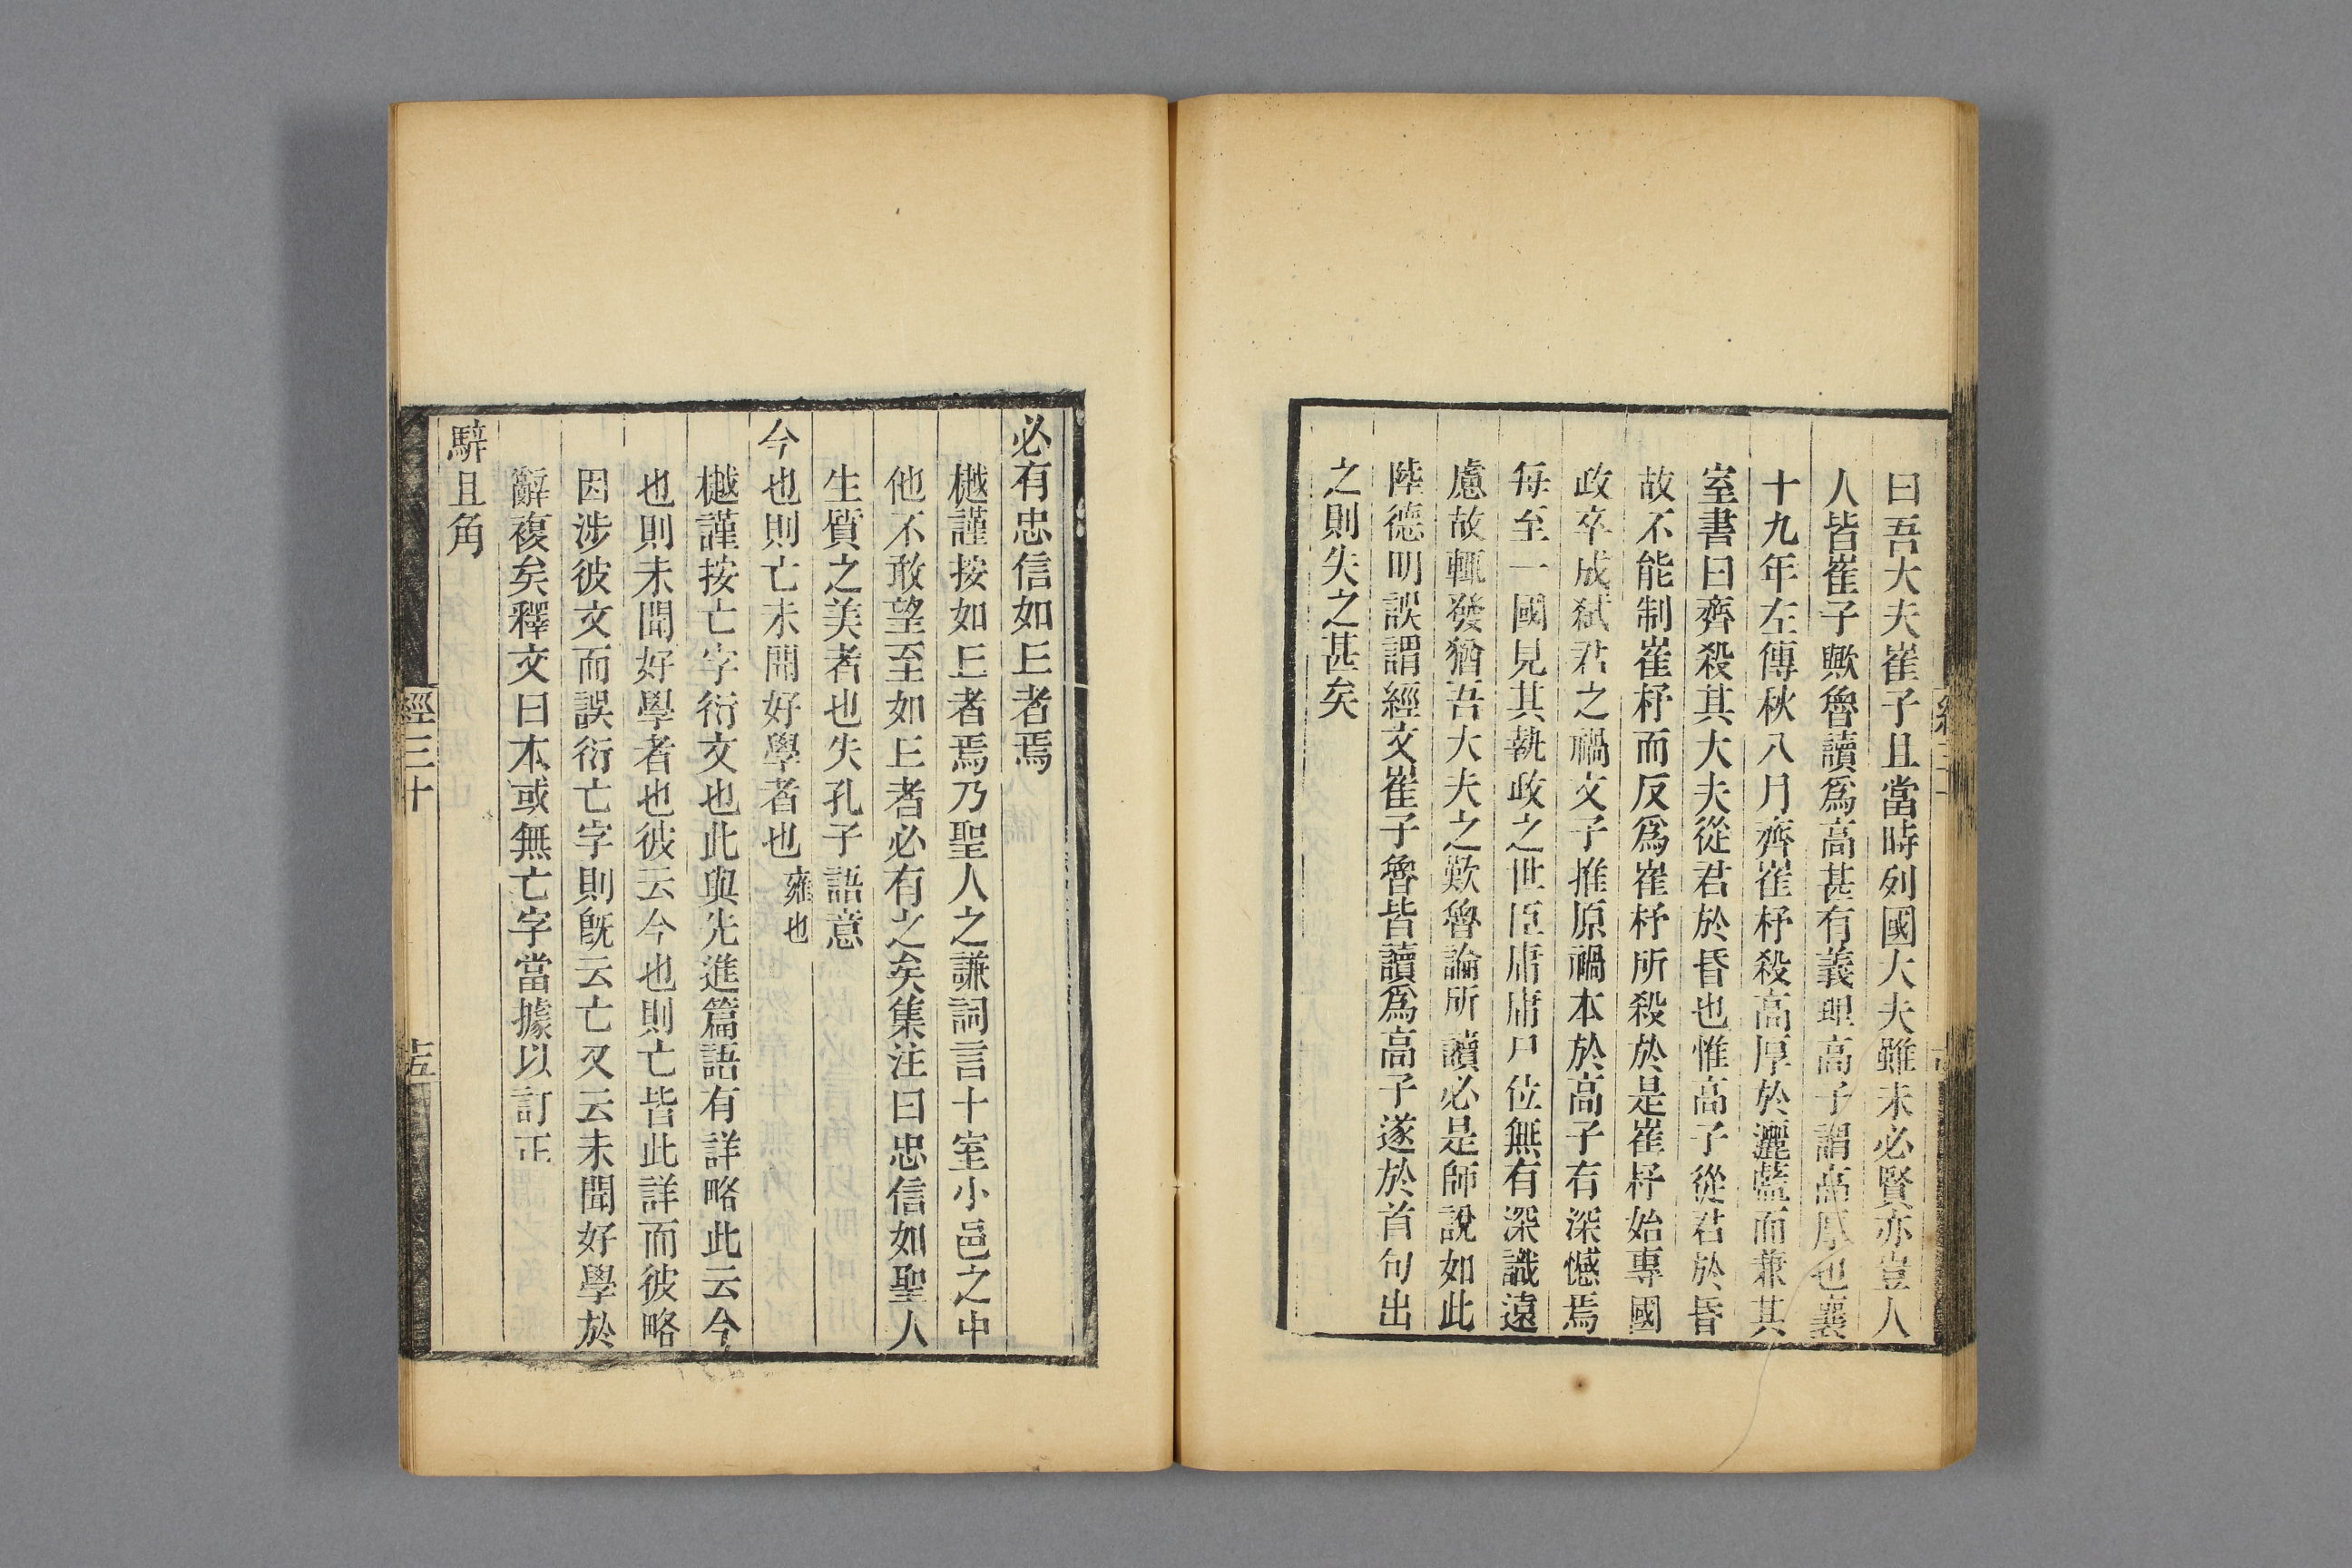 曰吾大夫崔子且當時列國大夫雖未必賢亦豈人
人皆崔子歟魯讀爲高甚有義理高子謂高厚也襄
十九年左傳秋八月齊崔杼殺高厚於灑藍而兼其
室書曰齊殺其大夫從君於昏也惟高子從君於昏
故不能制崔杼而反爲崔杼所殺於是崔杼始專國
政卒成弑君之禍文子推原禍本於高子有深憾焉
每至一國見其執政之世臣庸庸尸位無有深識遠
慮故輒發猶吾大夫之歎魯論所讀必是師說如此
陸德明誤謂經文崔子魯皆讀爲高子遂於首句出
之則失之甚矣
必有忠信如𠀉者焉
樾謹按如𠀉者焉乃聖人之謙詞言十室小邑之中
他不敢望至如𠀉者必有之矣集注曰忠信如聖人
生質之美者也失孔子語意
今也則亡未聞好學者也雍也
樾謹按亡字衍文也此與先進篇語有詳略此云今
也則未聞好學者也彼云今也則亡皆此詳而彼略
因涉彼文而誤衍亡字則旣云亡又云未聞好學於
辭複矣釋文曰本或無亡字當據以訂正
騂且角
經三十
十五